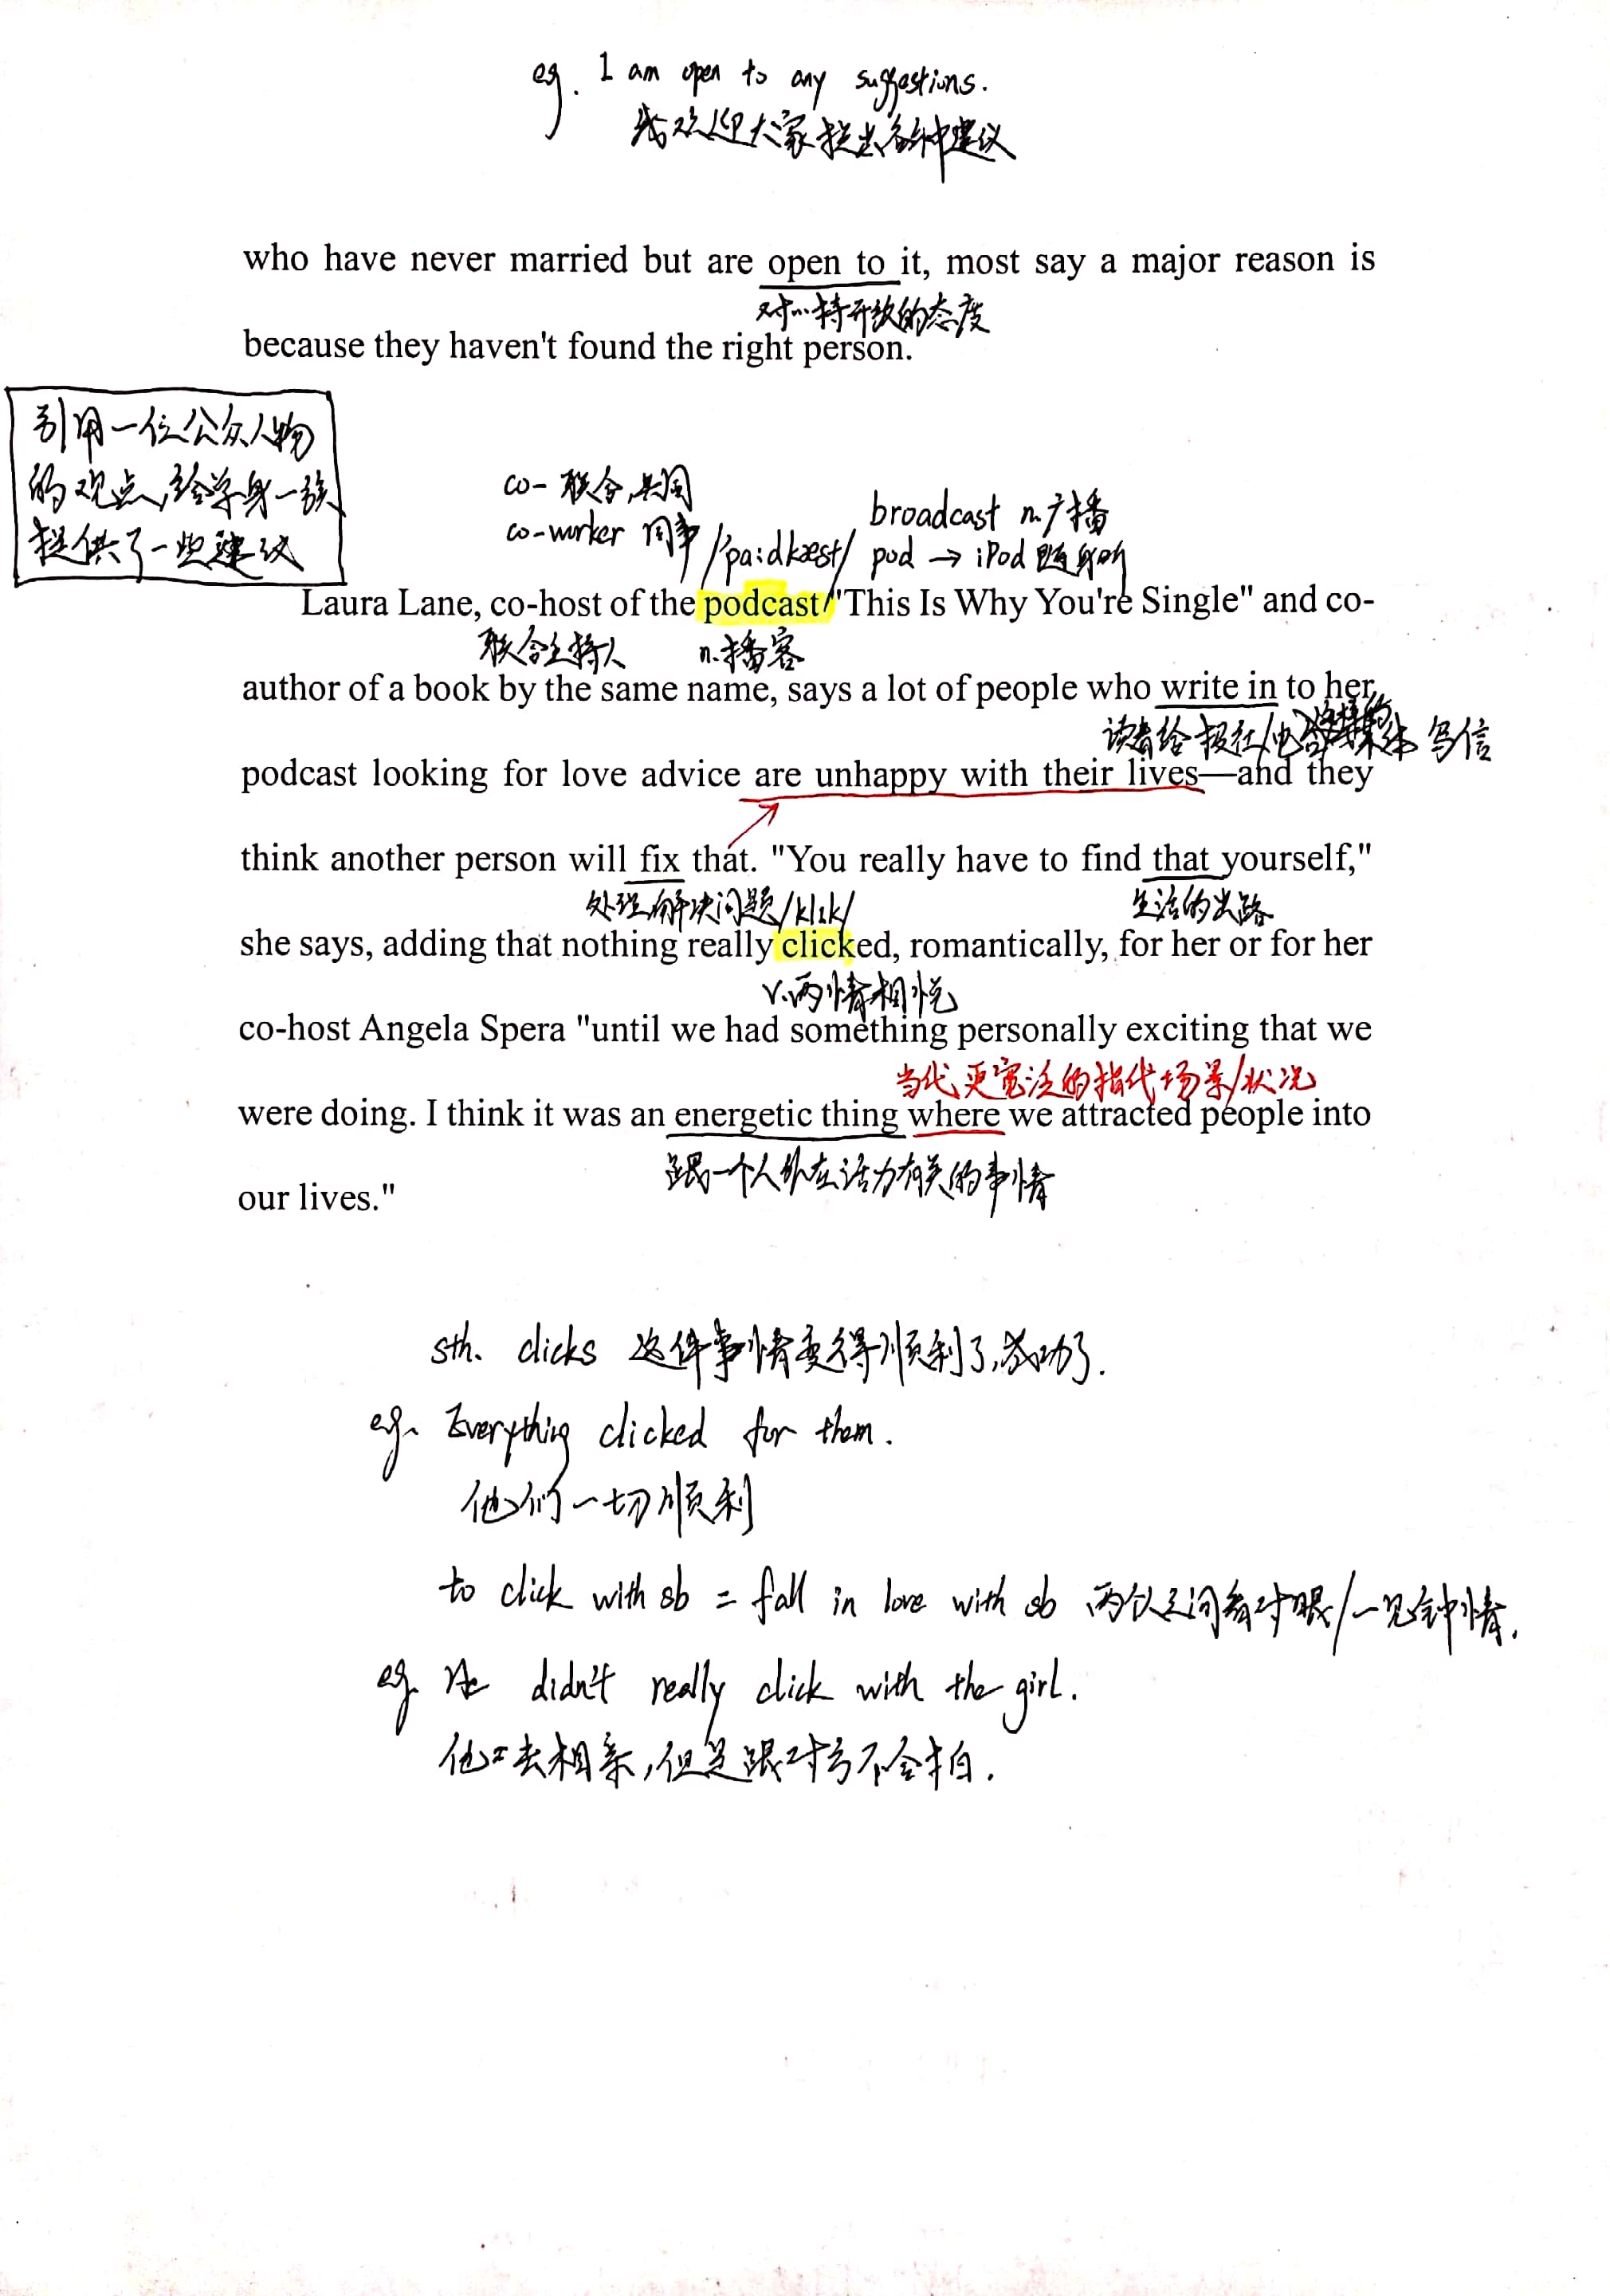 eg. I am open to any suggestions.
我欢迎大家提出各种建议
who have never married but are open to it, most say a major reason is
对…持开放的态度
because they haven't found the right person.
引用一位公众人物
的观点,给单身一族
提供了一些建议
co- 联合,共同
co-worker 同事
broadcast n.广播
/'pa:dkæst/ pod → iPod 随身听
Laura Lane, co-host of the podcast "This Is Why You're Single" and co-
联合主持人 n.播客
author of a book by the same name, says a lot of people who write in to her
读者给报社/电台 媒体 写信
podcast looking for love advice are unhappy with their lives—and they
think another person will fix that. "You really have to find that yourself,"
处理,解决问题 /klɪk/ 生活的出路
she says, adding that nothing really clicked, romantically, for her or for her
v.两情相悦
co-host Angela Spera "until we had something personally exciting that we
当代更宽泛的指代场景/状况
were doing. I think it was an energetic thing where we attracted people into
跟一个人外在活力有关的事情
our lives."
sth. clicks 这件事情变得顺利了,成功了.
eg. Everything clicked for them.
他们一切顺利
to click with sb = fall in love with sb 两个人之间看对眼/一见钟情.
eg. He didn't really click with the girl.
他去相亲,但是跟对方不合拍.